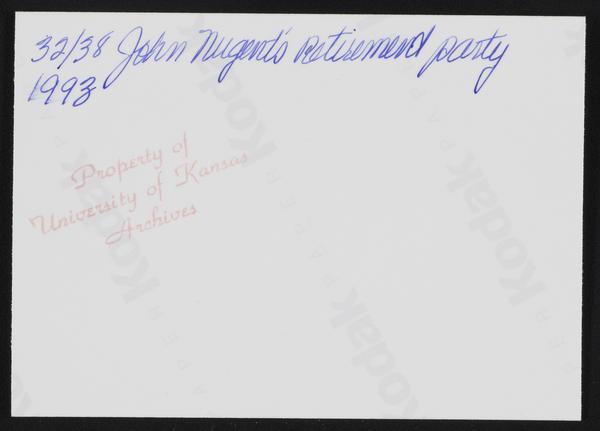 32/38 John Nugent's retirement party
1993
Property of
University of Kansas
Archives
Kodak
PAPER
Kodak
PAPER
Kodak
PAPER
Kodak
PAPER
Kodak